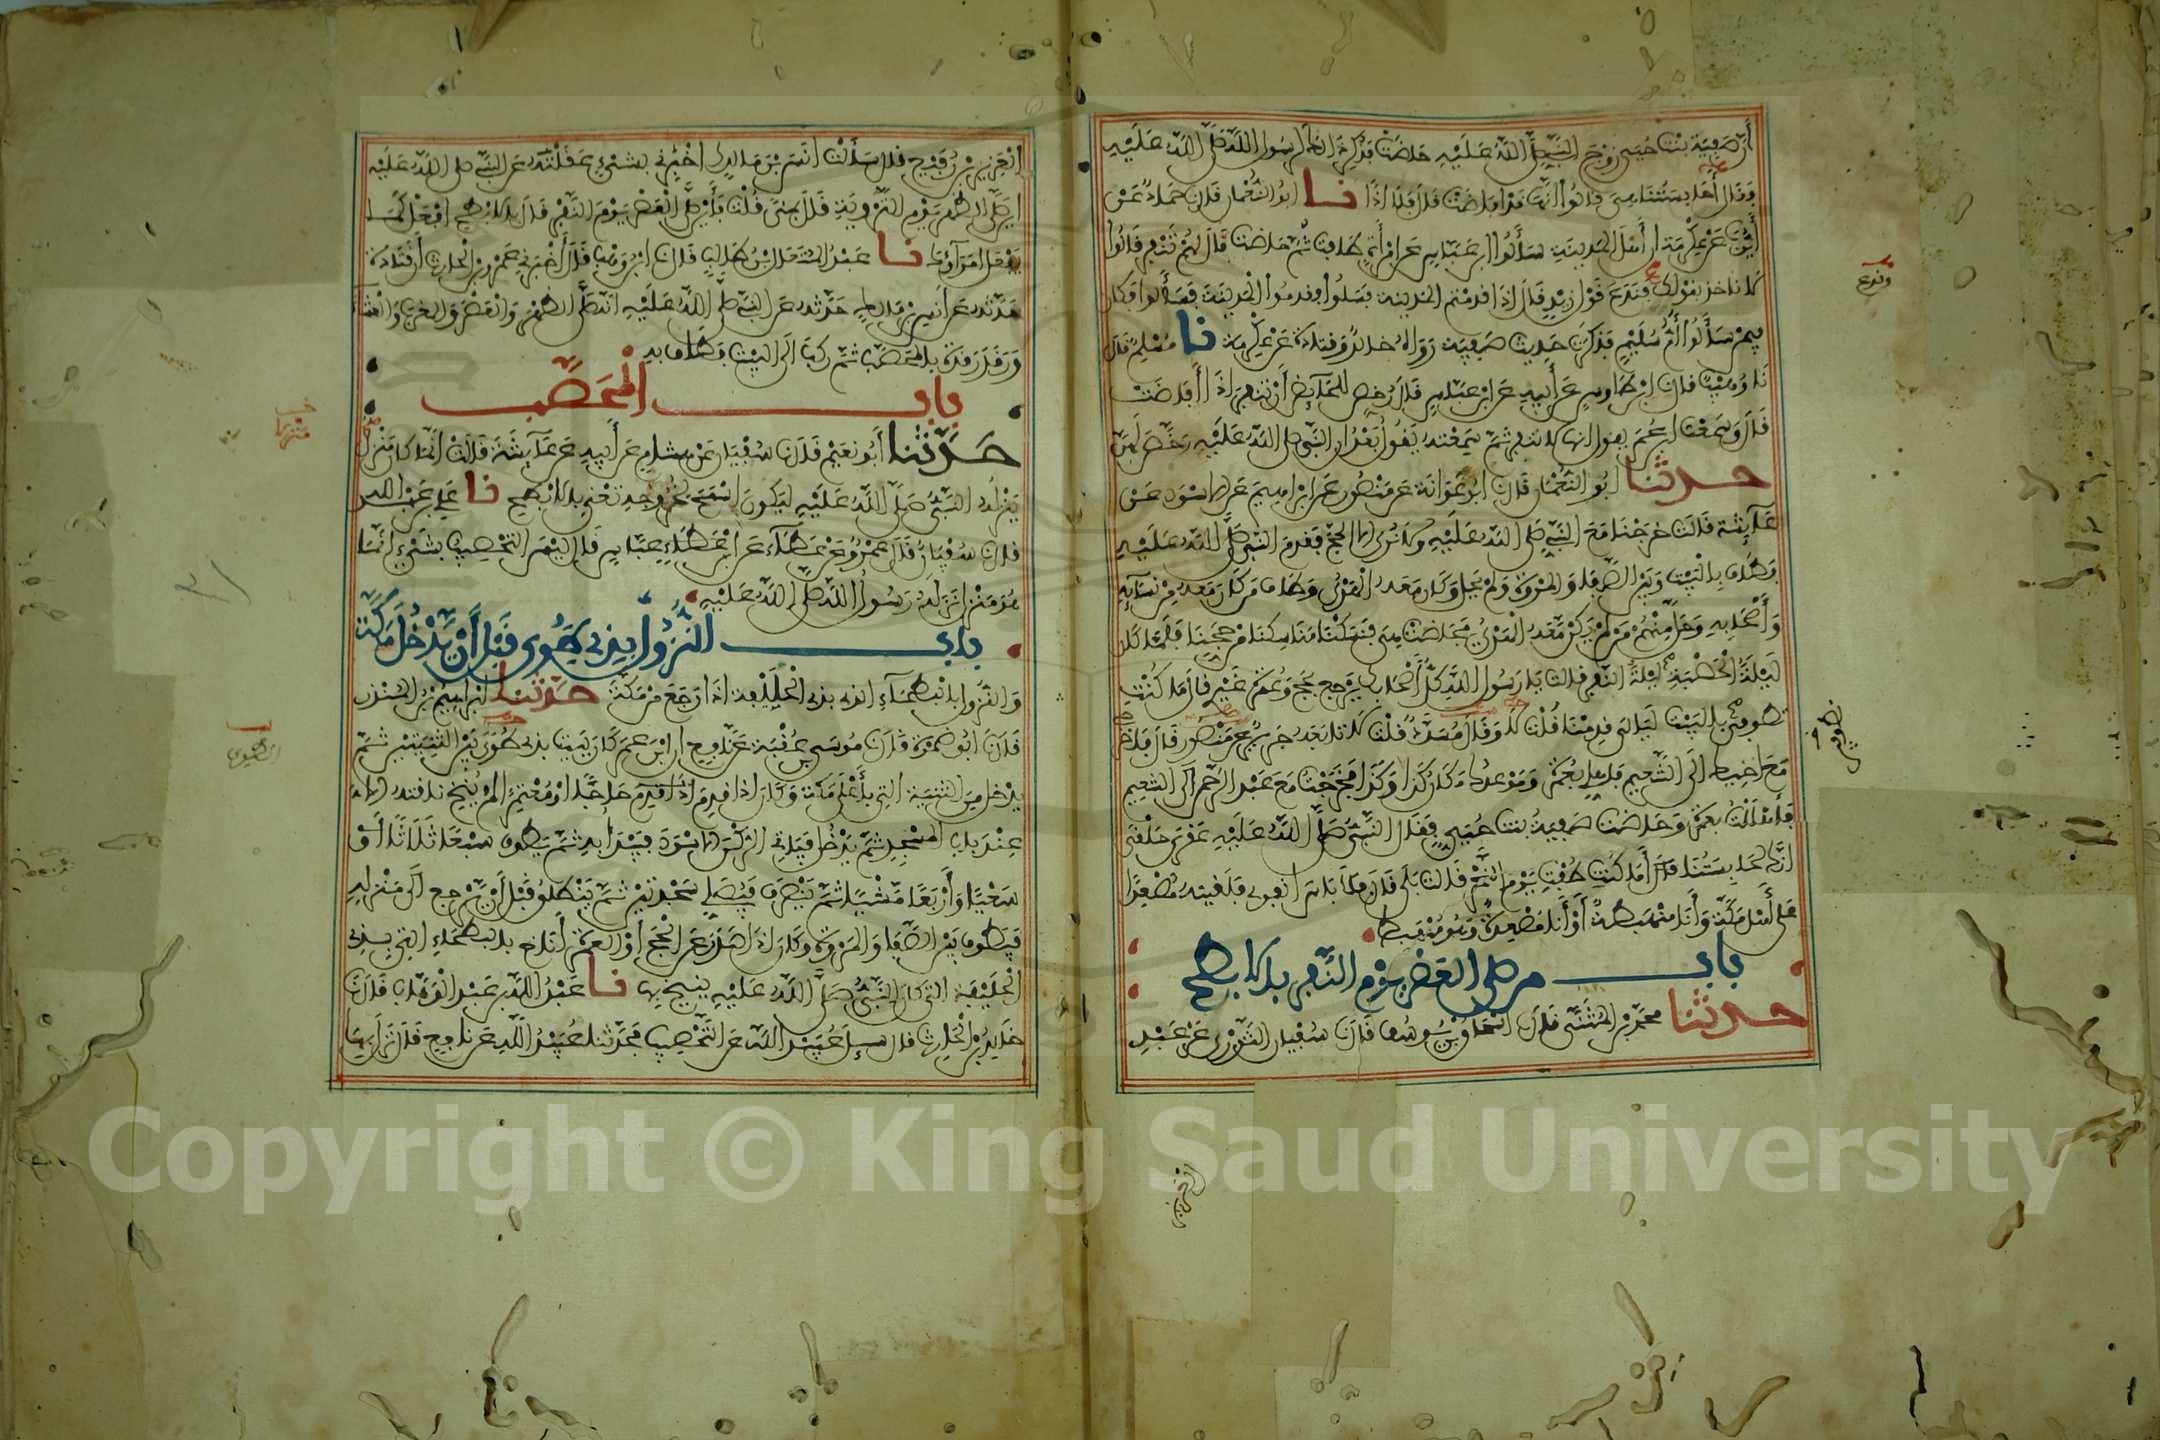 أن صفية بنت حيي زوج النبي صلى الله عليه حاضت فذكرت ذلك لرسول الله صلى الله عليه
فقال أحابستنا هي قالوا إنها قد افاضت قال فلا اذا نا ابو النعمان قال نا حماد عن
أيوب عن عكرمة ان أهل المدينة سألوا ابن عباس عن امرأة طافت ثم حاضت قال لهم تنفر قالوا
لا ناخذ بقولك فندع قول زيد قال اذا قدمتم المدينة فسلوا فقدموا المدينة فسألوا فكان
فيمن سألوا أم سليم فذكرت حديث صفية رواه خالد وقتادة عن عكرمة نا مسلم قال
نا وهيب قال نا ابن طاوس عن أبيه عن ابن عباس قال رخص للحائض أن تنفر اذا أفاضت
قال وسمعت ابن عمر يقول انها لا تنفر ثم سمعته يقول بعد ان النبي صلى الله عليه رخص لهن
حدثنا ابو النعمان قال نا ابو عوانة عن منصور عن ابراهيم عن الاسود عن
عائشة قالت خرجنا مع النبي صلى الله عليه ولا نرى الا الحج فقدم النبي صلى الله عليه
وطاف بالبيت وبين الصفا والمروة ولم يحل وكان معه الهدي وطاف من كان معه من نسائه
وأصحابه وحل منهم من لم يكن معه الهدي فحاضت هي فنسكنا مناسكنا من حجنا فلما كان
ليلة الحصبة ليلة النفر قالت يا رسول الله كل أصحابك يرجع بحج وعمرة غيري قال ما كنت
تطوفي بالبيت ليالي قدمنا قلت لا وقال مسدد قلت لا تابعه جرير عن منصور قال فاخرجي
مع اخيك الى التنعيم فاهلي بعمرة وموعدك مكان كذا وكذا فخرجت مع عبد الرحمن الى التنعيم
فاهللت بعمرة وحاضت صفية بنت حيي فقال النبي صلى الله عليه عقرى حلقى
انك لحابستنا قال أما كنت طفت يوم النحر قالت بلى قال فلا باس انفري فلقيته مصعدا
على أهل مكة وأنا منهبطة أو أنا مصعدة وهو منهبط
باب من صلى العصر يوم النفر بالابطح
حدثنا محمد بن المثنى قال نا اسحاق بن يوسف قال نا سفيان الثوري عن عبد
العزيز بن رفيع قال سألت انس بن مالك أخبرني بشيء عقلته عن النبي صلى الله عليه
اين صلى الظهر يوم التروية قال بمنى قلت فأين صلى العصر يوم النفر قال بالابطح افعل كما
يفعل امراؤك نا عبد المتعال بن طالب قال نا ابن وهب قال أخبرني عمرو بن الحارث أن قتادة
حدثه عن أنس بن مالك حدثه عن النبي صلى الله عليه انه صلى الظهر والعصر والمغرب والعشاء
ورقد رقدة بالمحصب ثم ركب الى البيت فطاف به
باب المحصب
حدثنا أبو نعيم قال نا سفيان عن هشام عن أبيه عن عائشة قالت انما كان منزل
ينزله النبي صلى الله عليه ليكون اسمح لخروجه تعني بالابطح نا علي بن عبد الله
قال نا سفيان قال عمرو عن عطاء عن ابن عباس قال ليس التحصيب بشيء انما
هو منزل نزله رسول الله صلى الله عليه
باب النزول بذي طوى قبل أن يدخل مكة
والنزول بالبطحاء التي بذي الحليفة اذا رجع من مكة حدثنا ابراهيم بن المنذر
قال نا ابو ضمرة قال نا موسى بن عقبة عن نافع ان ابن عمر كان يبيت بذي طوى بين الثنيتين ثم
يدخل من الثنية التي بأعلى مكة وكان اذا قدم حاجا أو معتمرا لم ينخ ناقته الا
عند باب المسجد ثم يدخل فياتي الركن الاسود فيبدأ به ثم يطوف سبعا ثلاثا
سعيا وأربعا مشيا ثم ينصرف فيصلي سجدتين ثم ينطلق قبل أن يرجع الى منزله
فيطوف بين الصفا والمروة وكان اذا صدر عن الحج أو العمرة أناخ بالبطحاء التي بذي
الحليفة التي كان النبي صلى الله عليه ينيخ بها نا عبد الله بن عبد الوهاب قال نا
خالد بن الحارث قال سيل عبيد الله عن التحصيب فحدثنا عبيد الله عن نافع قال نزل بها
Copyright © King Saud University